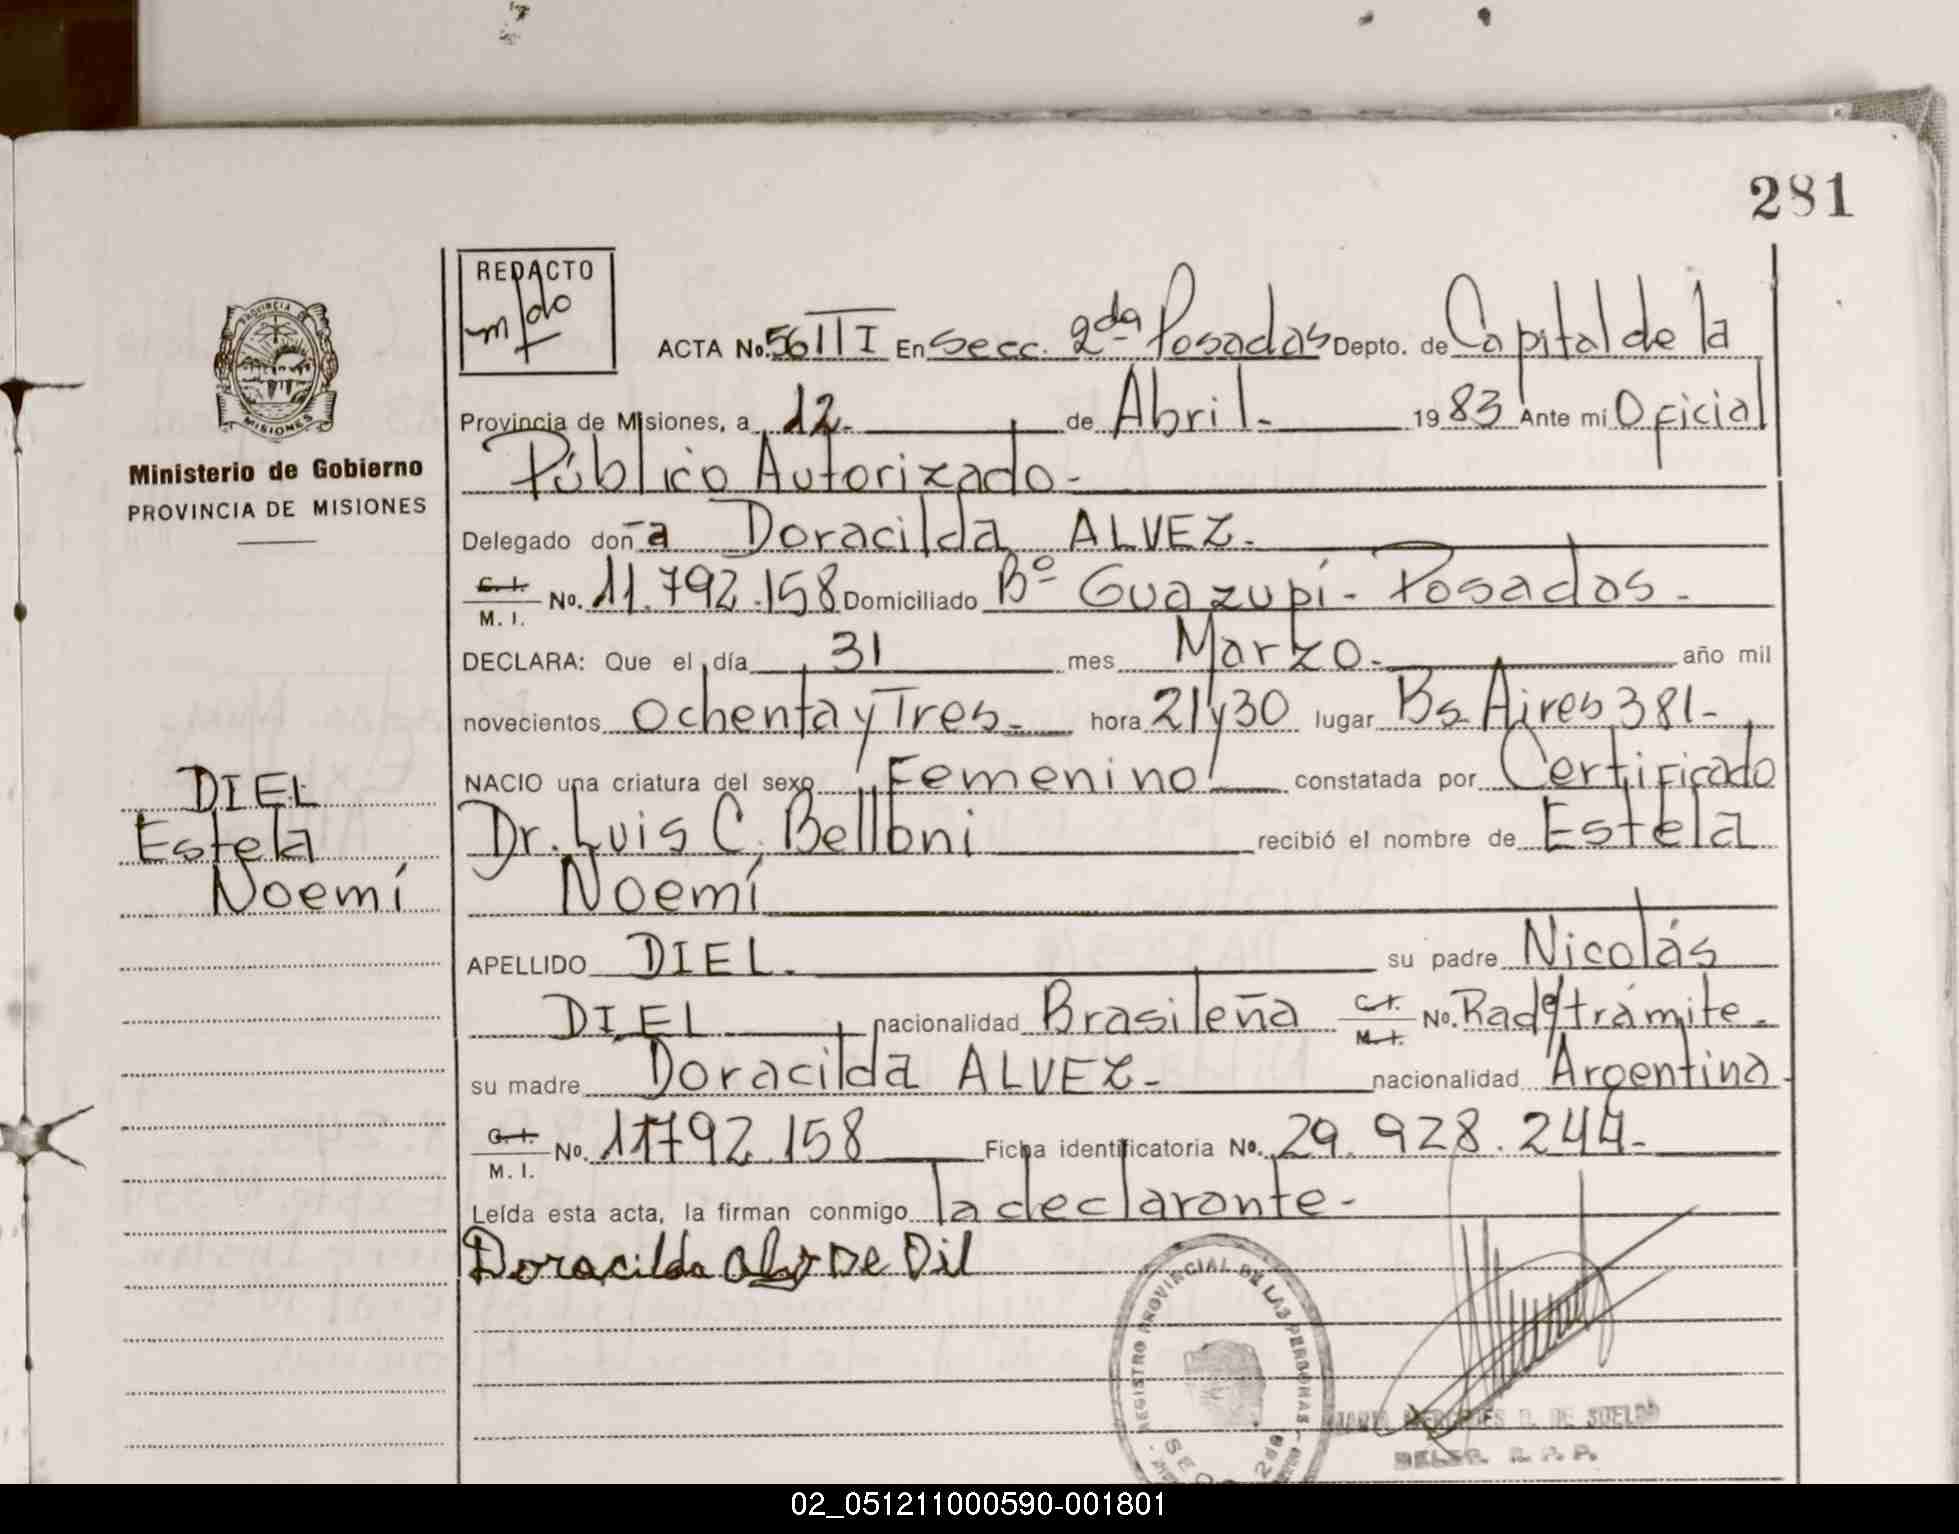 281
REDACTO
ACTA No. 561 III En Secc. 2da Posadas Depto. de Capital de la
Provincia de Misiones, a 12. de Abril. 1983 Ante mí Oficial
Público Autorizado.
Delegado doña Doracilda ALVEZ.
C. I. M. I. No. 11.792.158 Domiciliado Bº Guazupí - Posadas.
DECLARA: Que el día 31 mes Marzo. año mil
novecientos ochenta y Tres. hora 21 y 30 lugar Bs. Aires 381-
NACIO una criatura del sexo Femenino constatada por Certificado
Dr. Luis C. Belloni recibió el nombre de Estela
Noemí
APELLIDO DIEL. su padre Nicolás
DIEL nacionalidad Brasileña C. I. M. I. No. Rad. trámite.
su madre Doracilda ALVEZ. nacionalidad Argentina.
C. I. M. I. No. 11792.158 Ficha identificatoria No. 29.928.244-
Leída esta acta, la firman conmigo la declarante.
Doracilda De Dil
PROVINCIA DE
MISIONES
Ministerio de Gobierno
PROVINCIA DE MISIONES
DIEL
Estela
Noemí
REGISTRO PROVINCIAL DE LAS PERSONAS
02_051211000590-001801